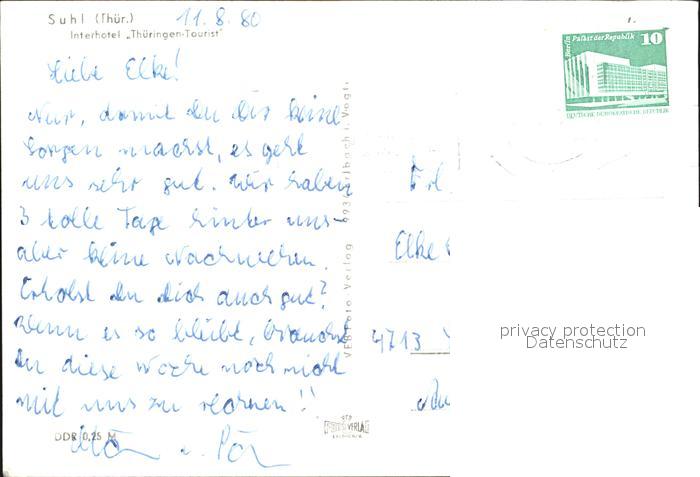 Suhl (Thür.)
Interhotel „Thüringen-Tourist"
11.8.80
Liebe Elke!
Nur, damit Du Dir keine
Sorgen machst, es geht
uns sehr gut. Wir haben
3 tolle Tage hinter uns -
aber keine Nachwehen.
Erholst Du Dich auch gut?
Wenn es so bleibt, brauchst
Du diese Woche noch nicht
mit uns zu rechnen!!
u.
DDR 0,25 M
VEB Foto Verlag
Berlin Palast der Republik
10
DEUTSCHE DEMOKRATISCHE REPUBLIK
Frl.
Elke
4713
privacy protection
Datenschutz